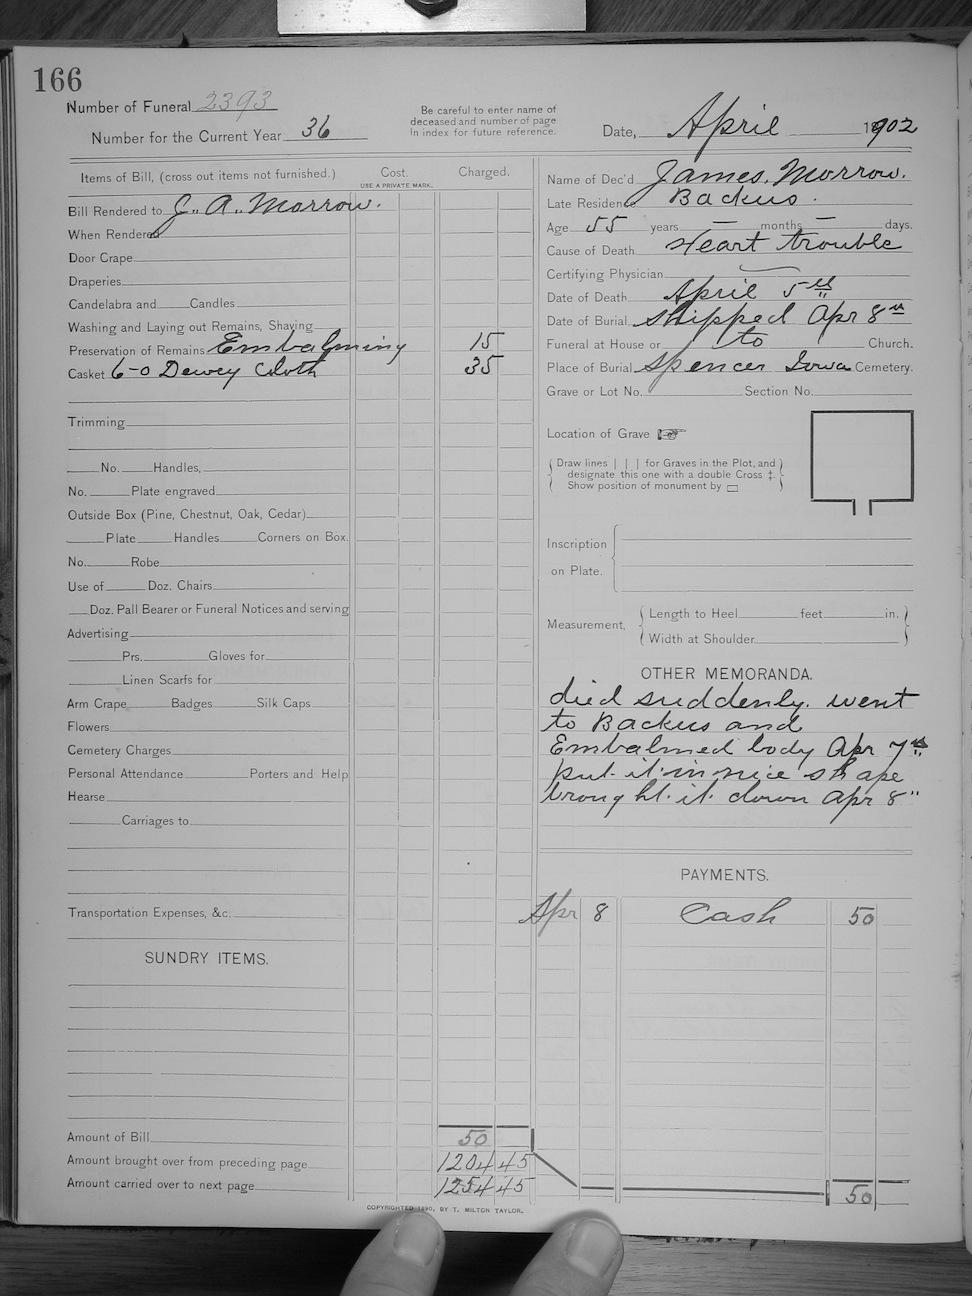 166
Number of Funeral 2393
Number for the Current Year 36
Be careful to enter name of
deceased and number of page
In index for future reference.
Date, April 1902
Items of Bill, (cross out items not furnished.)
Cost.
USE A PRIVATE MARK.
Charged.
Bill Rendered to J. A. Morrow.
When Rendered
Door Crape
Draperies
Candelabra and Candles
Washing and Laying out Remains, Shaving
Preservation of Remains Embalming 15
Casket 6-0 Dewey Cloth 35
Trimming
No. Handles,
No. Plate engraved
Outside Box (Pine, Chestnut, Oak, Cedar)
Plate Handles Corners on Box.
No. Robe
Use of Doz. Chairs
Doz. Pall Bearer or Funeral Notices and serving
Advertising
Prs. Gloves for
Linen Scarfs for
Arm Crape Badges Silk Caps
Flowers
Cemetery Charges
Personal Attendance Porters and Help
Hearse
Carriages to
Transportation Expenses, &c.
SUNDRY ITEMS.
Amount of Bill 50
Amount brought over from preceding page 1204 45
Amount carried over to next page 1254 45
Name of Dec'd James. Morrow.
Late Residence Backus.
Age 55 years — months — days.
Cause of Death Heart trouble
Certifying Physician
Date of Death April 5th
Date of Burial shipped Apr 8th
Funeral at House or to Church.
Place of Burial Spencer Iowa Cemetery.
Grave or Lot No. Section No.
Location of Grave
Draw lines | | | for Graves in the Plot, and
designate this one with a double Cross ‡.
Show position of monument by
Inscription
on Plate.
Measurement,
Length to Heel feet in.
Width at Shoulder
OTHER MEMORANDA.
died suddenly. went
to Backus and
Embalmed body Apr 7th
put it in nice shape
brought it down Apr 8"
PAYMENTS.
Apr 8 Cash 50
50
COPYRIGHTED 1890, BY T. MILTON TAYLOR.